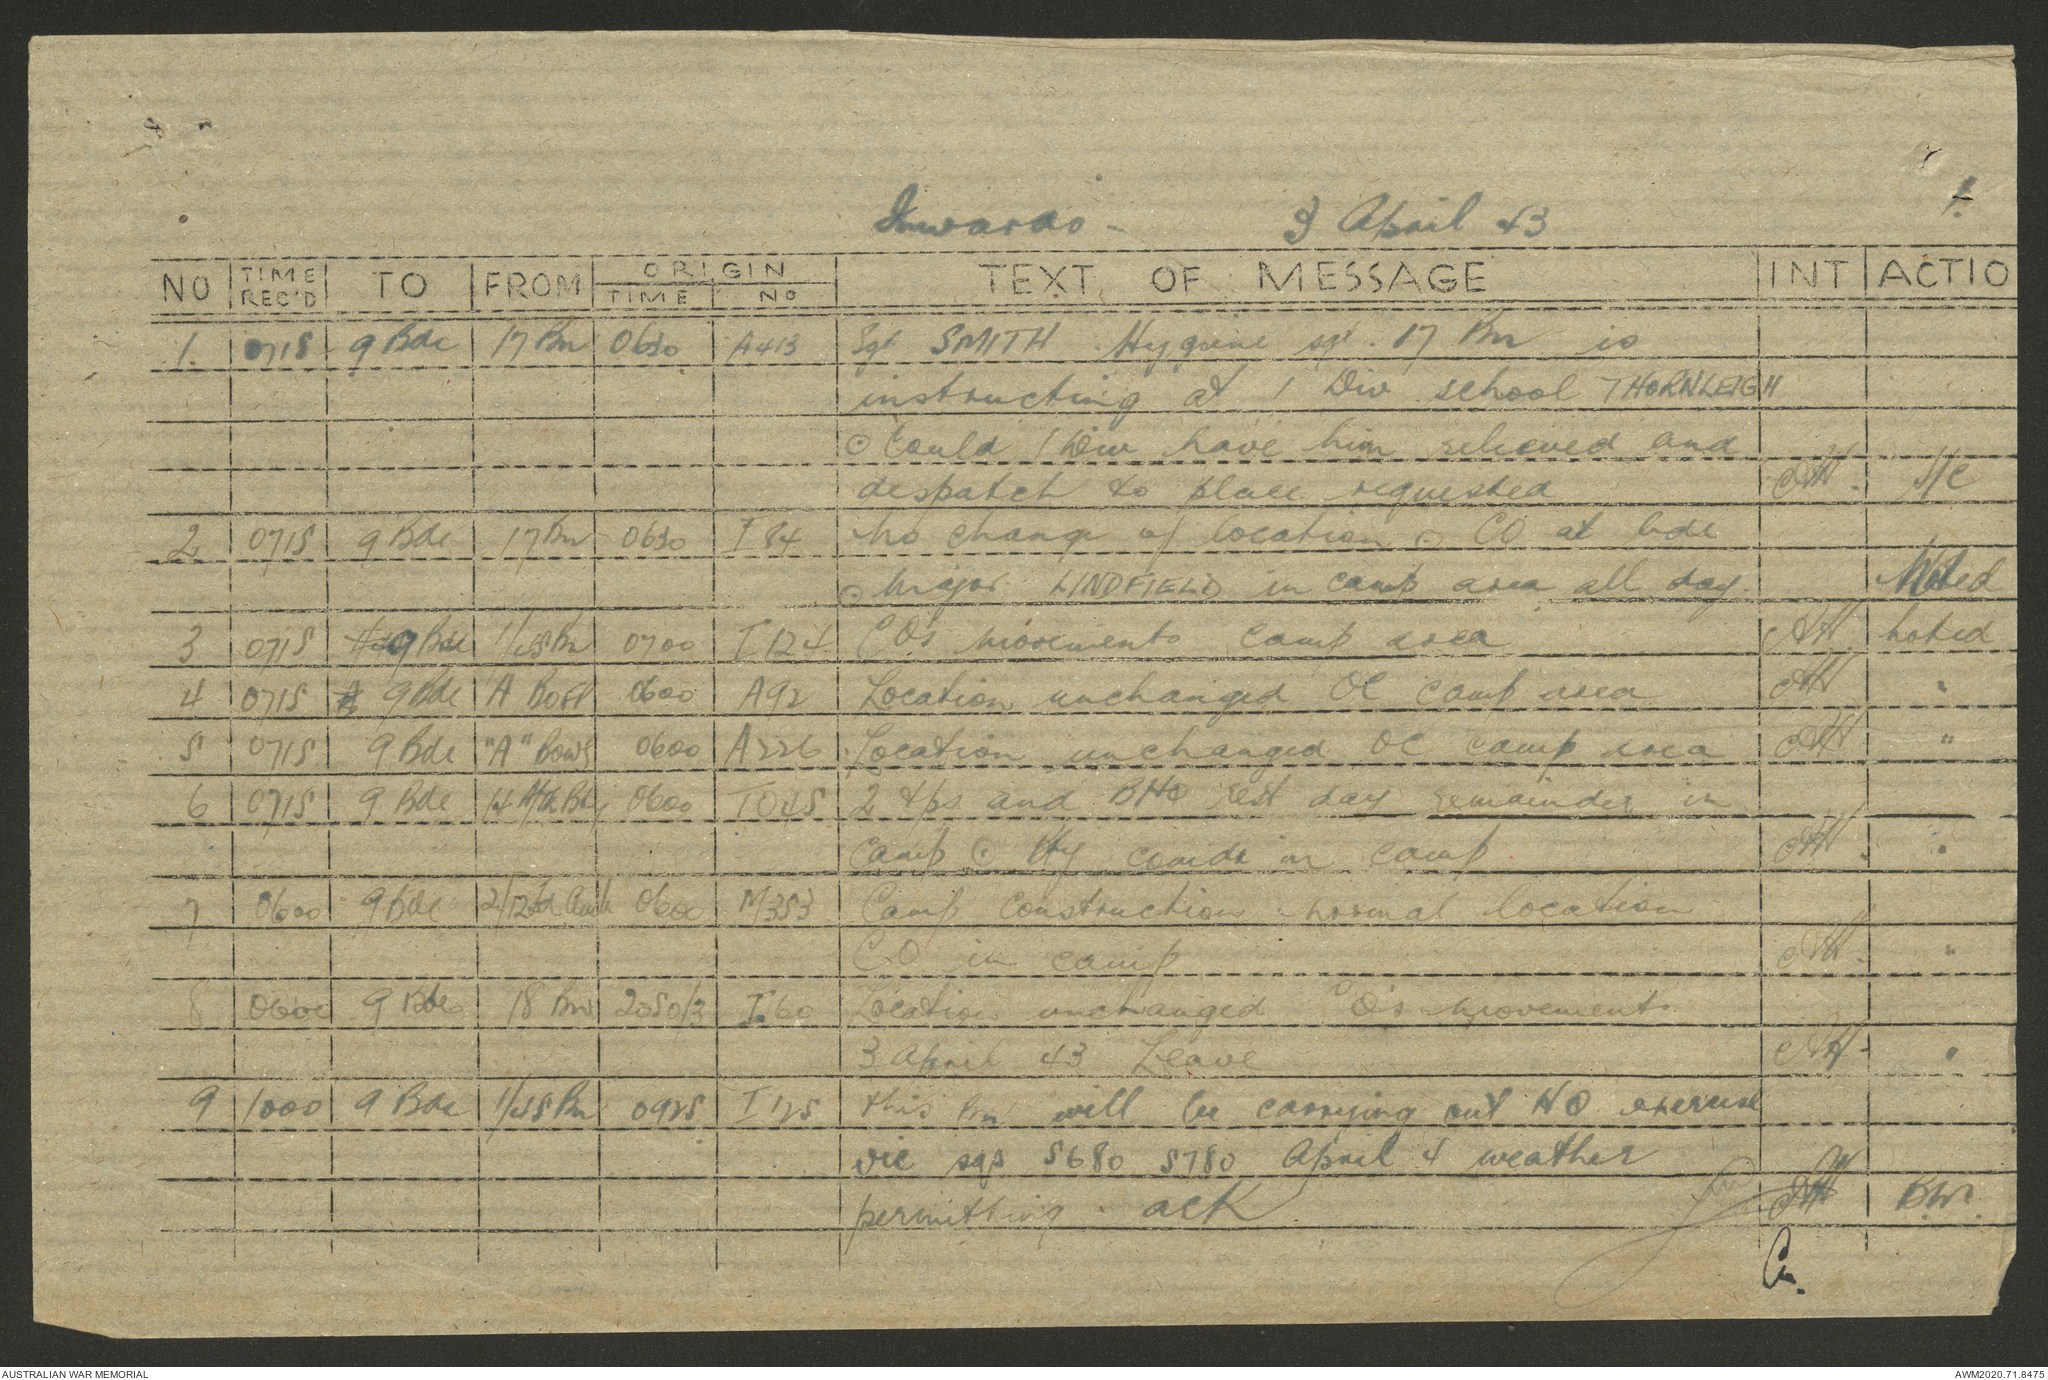 Inwards - 3 April 43
1.
NO | TIME REC'D | TO | FROM | ORIGIN TIME | NO | TEXT OF MESSAGE | INT | ACTIO
1. | 0715 | 9 Bde | 17 Bn | 0630 | A413 | Sgt SMITH Hygiene sgt. 17 Bn is
instructing at 1 Div school THORNLEIGH
⊙ Could 1 Div have him relieved and
despatch to place requested | S/C
2 | 0715 | 9 Bde | 17 Bn | 0630 | I 84 | No change of location ⊙ CO at bde
⊙ Major LINDFIELD in camp area all day. | Noted
3 | 0715 | 9 Bde | 1/45 Bn | 0700 | I 124 | CO's movements camp area | noted
4 | 0715 | 9 Bde | A | 0600 | A92 | Location unchanged OC camp area | "
5 | 0715 | 9 Bde | "A" | 0600 | A226 | Location unchanged OC camp area | "
6 | 0715 | 9 Bde | 0600 | T045 | 2 tps and BHQ rest day remainder in
camp ⊙ Bty comdr in camp | "
7 | 0600 | 9 Bde | 0600 | M353 | Camp construction normal location
CO in camp | "
8 | 0600 | 9 Bde | 18 Bn | 2050/3 | I 60 | Location unchanged CO's movement
3 April 43 Leave | "
9 | 1000 | 9 Bde | 1/45 Bn | 0925 | I 125 | this Bn will be carrying out HQ exercise
vic sqs 5680 5780 April 4 weather
permitting ack | B.M.
AUSTRALIAN WAR MEMORIAL
AWM2020.71.8475